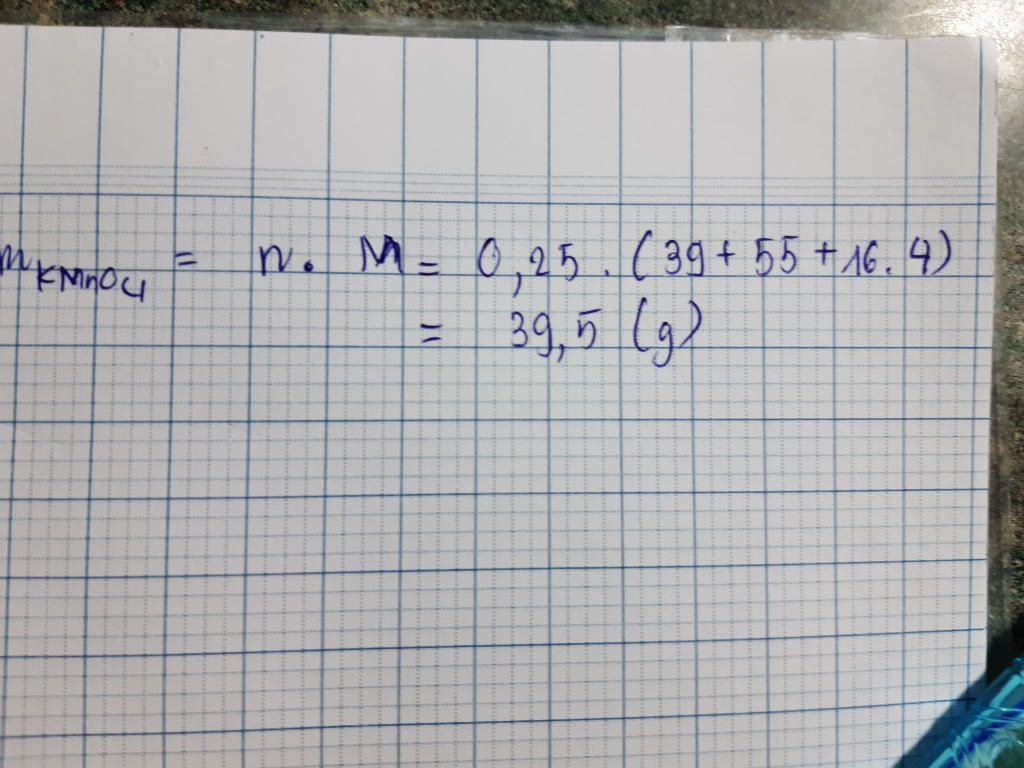 m KMnO4 = n. M = 0,25 . (39 + 55 + 16. 4)
= 39,5 (g)